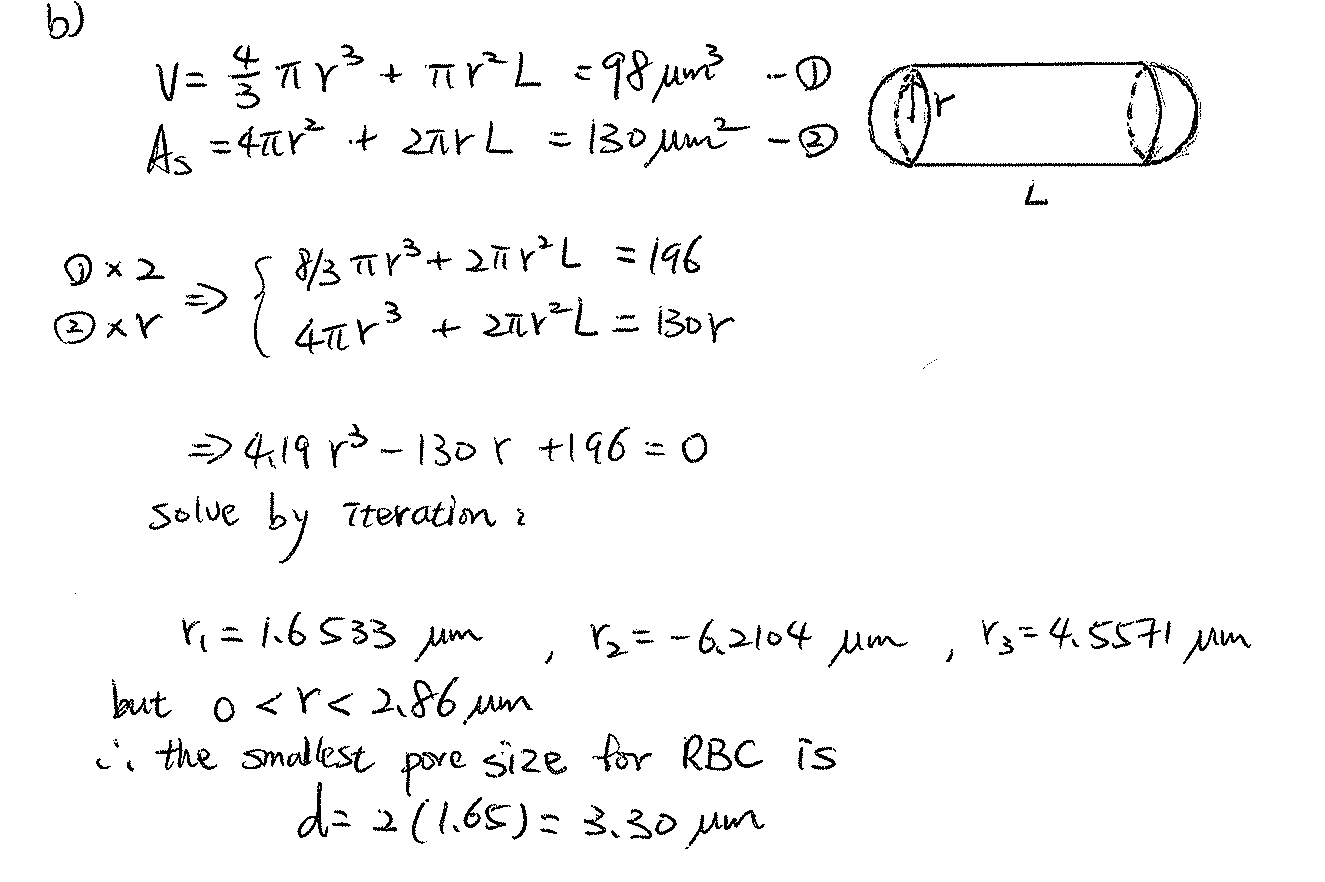 b)
V= 4/3 πr³ + πr²L = 98 μm³ -①
r
As = 4πr² + 2πrL = 130 μm² -②
L
① × 2 ⇒ { 8/3 πr³ + 2πr²L = 196
② × r 4πr³ + 2πr²L = 130r
⇒ 4.19 r³ - 130 r + 196 = 0
solve by iteration :
r₁ = 1.6533 μm , r₂ = -6.2104 μm , r₃ = 4.5571 μm
but 0 < r < 2.86 μm
∴ the smallest pore size for RBC is
d = 2 (1.65) = 3.30 μm